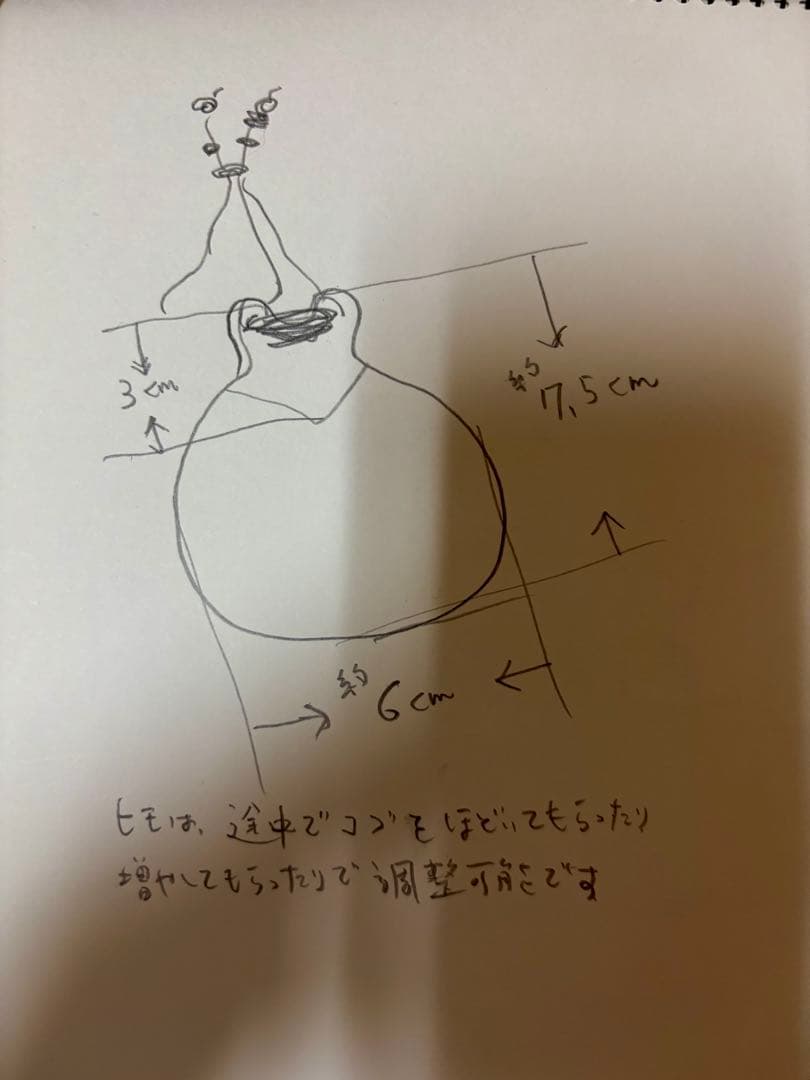 3cm
約 7.5cm
約 6cm
ヒモは、途中でコブをほどいてもらったり
増やしてもらったりで調整可能です